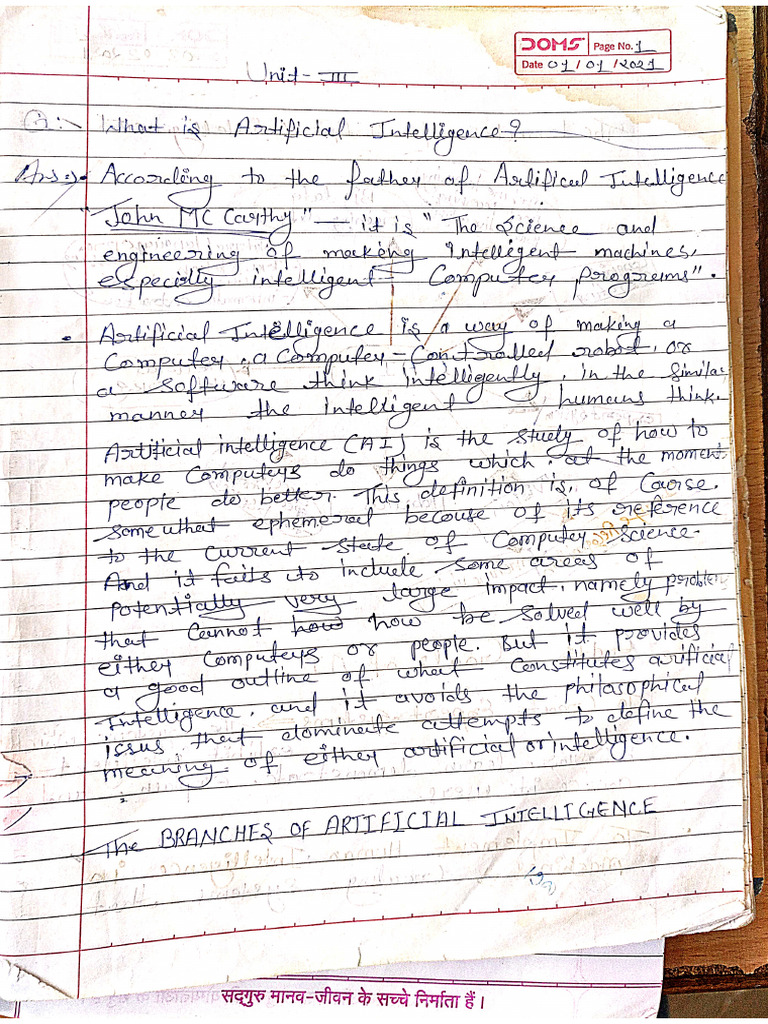 DOMS Page No. 1
Date 01 / 01 / 2021
Unit - III
Q:- What is Artificial Intelligence?
Ans:- According to the father of Artifical Intelligence
"John MC Carthy" — it is "The Science and
engineering of making intelligent machines,
especially intelligent Computer programs".
• Artificial Intelligence is a way of making a
Computer, a Computer - Controlled robot, or
a Software think intelligently, in the Similar
manner the intelligent humans think.
Artificial intelligence (AI) is the study of how to
make Computers do things which, at the moment
people do better. This definition is, of Caurse.
Some what ephemeral because of its reference
to the current State of Computer Science.
And it fails to include some areas of
potentially very large impact, namely problem
that Cannot how how be solved well by
either Computers or people. But it provides
a good outline of what constitutes arificial
Intelligence, and it avoids the philosophical
issus that dominate attempts to define the
meaning of either artificial or intelligence.
The BRANCHES OF ARTIFICIAL INTELLIGENCE
सद्गुरु मानव-जीवन के सच्चे निर्माता हैं।